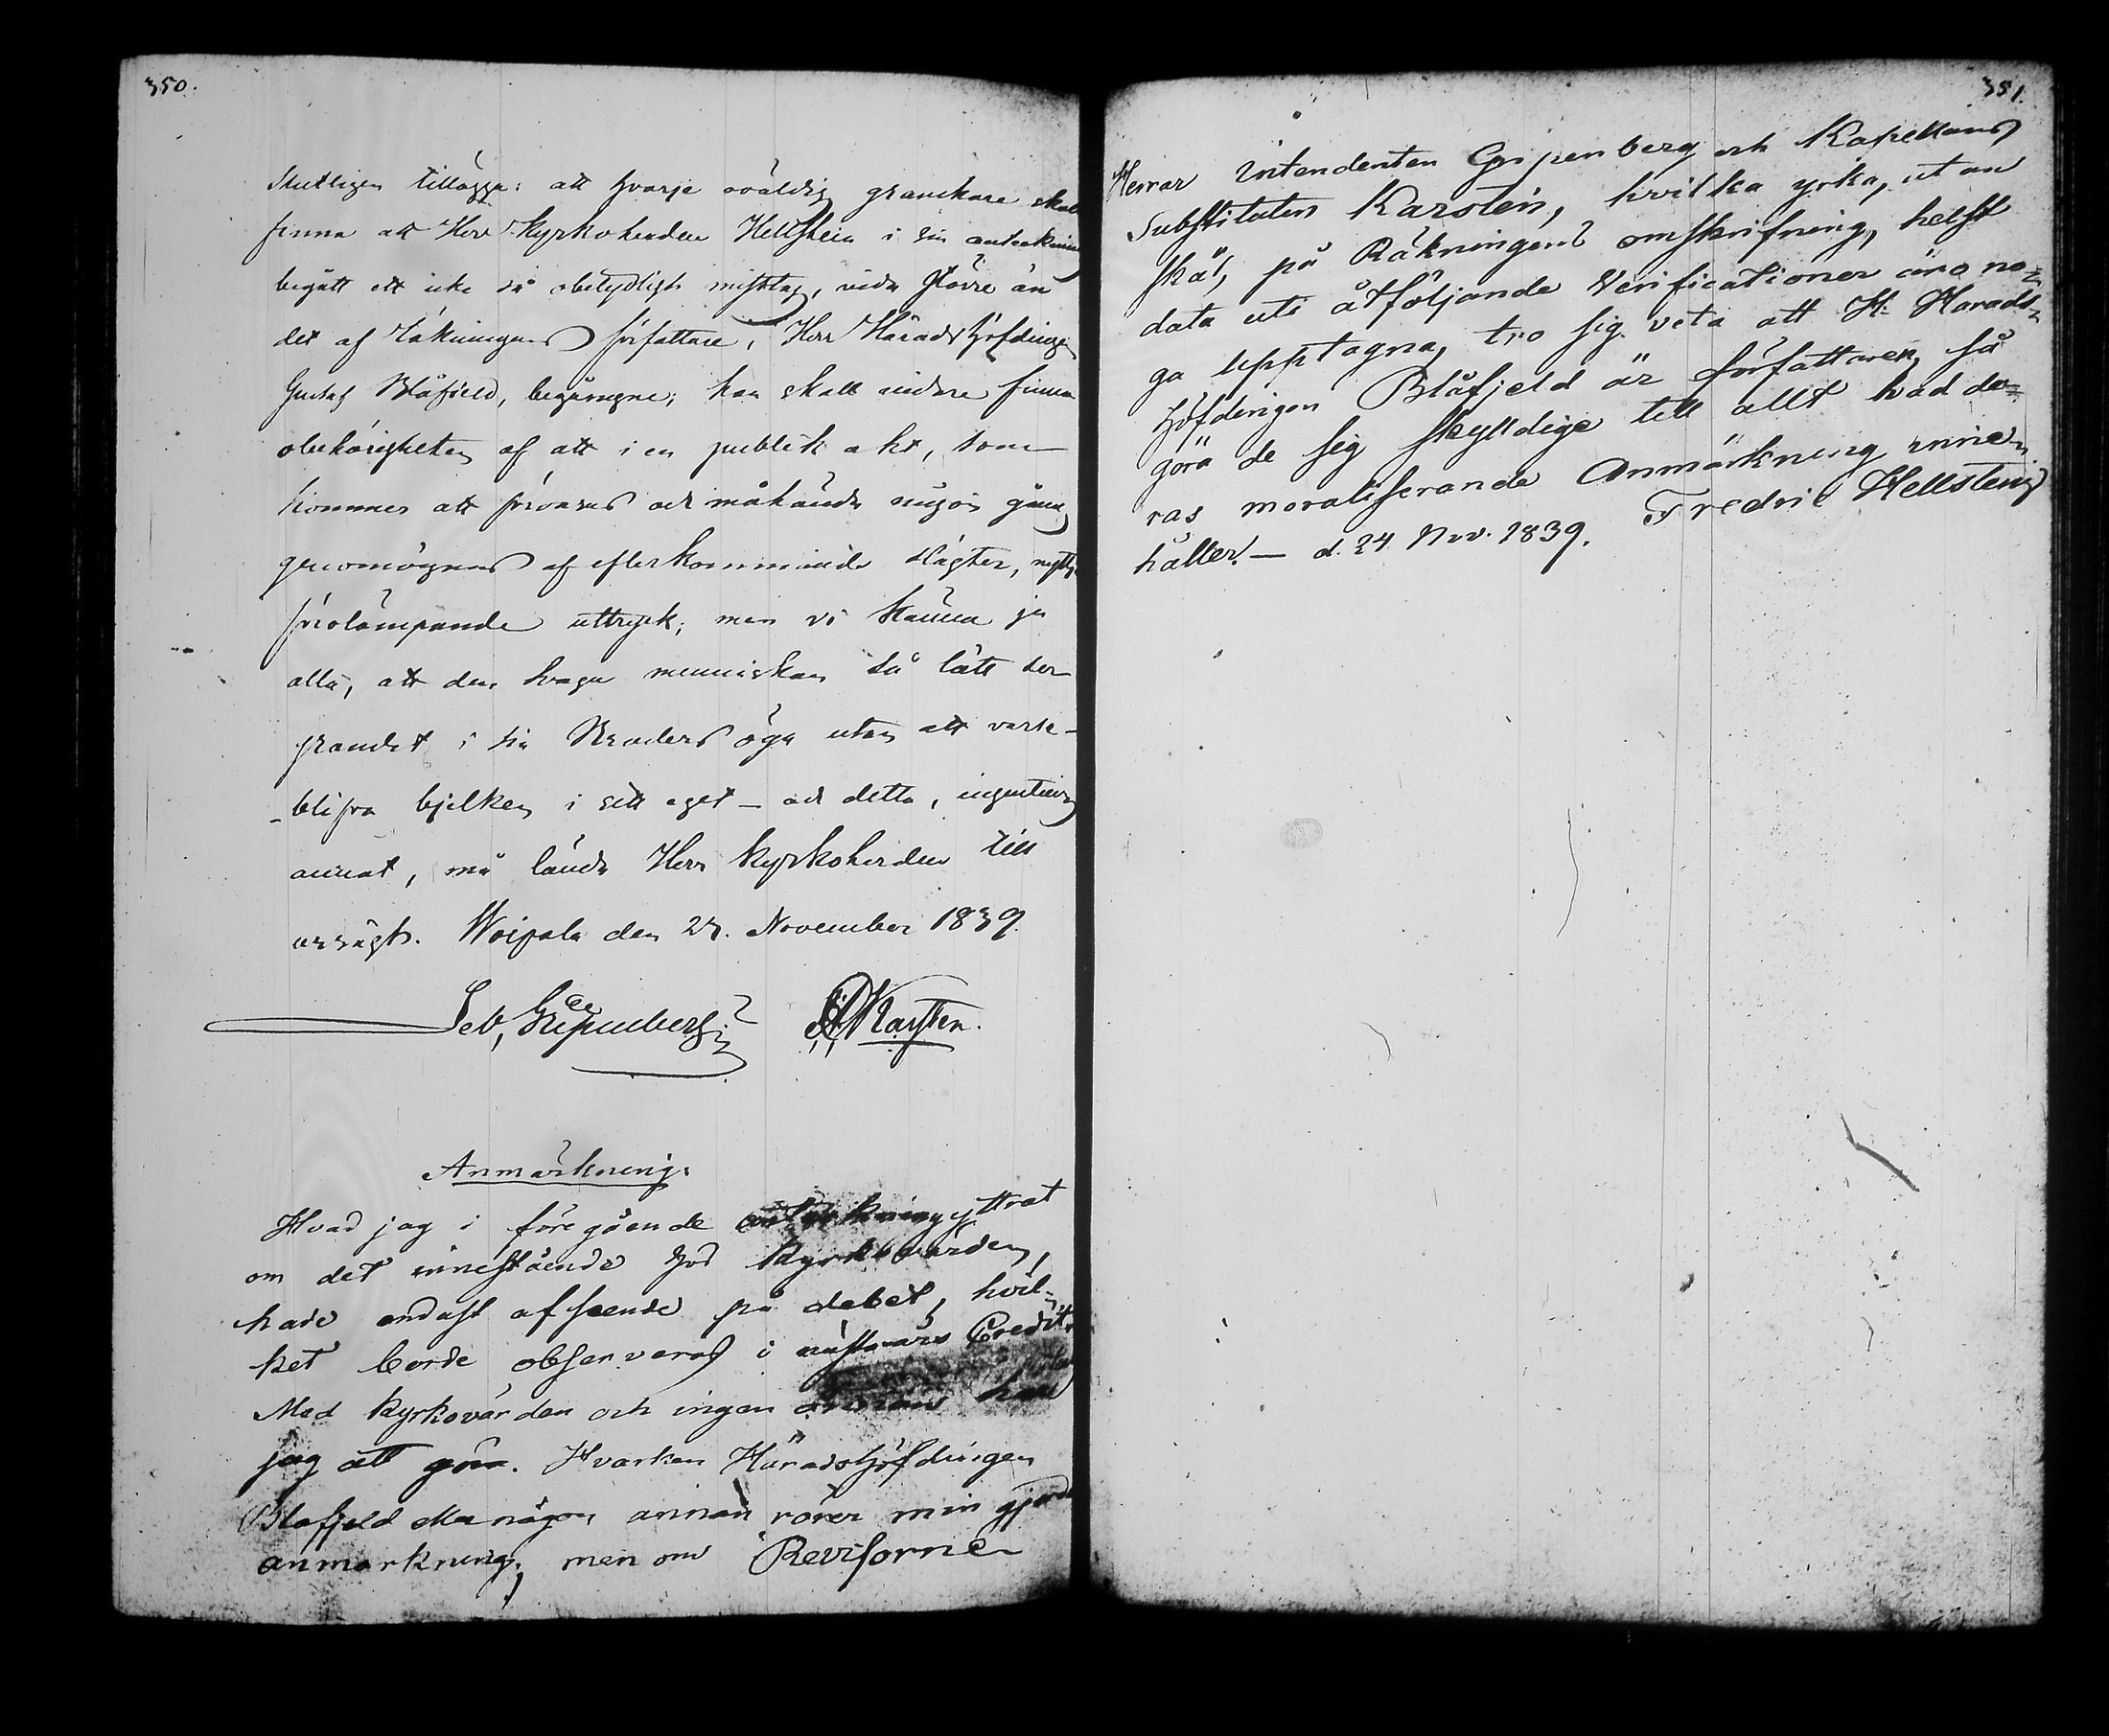 350.
Slutligen tillägga: att hvarje oväldig granskare skall
finna att Herr Kyrkoherden Hellsten i sin anteckning
begått ett icke så obetydligt misstag, vida större än
det af räkningens författare, Herr Häradshöfdingen
Gustaf Blåfield, begångne; han skall vidare finna
obehörigheten af att i en publik akt, som
kommer att förvaras och måhända någon gång
genomögnas af efterkommande slägter, nyttja
förolämpande uttryck; men vi känna ju
alla, att den svaga menniskan så lätt ser
grandet i sin Broders öga utan att varse-
-blifva bjelken i sitt eget – och detta, ingenting
annat, må lända Herr Kyrkoherden till
ursägt. Woipala den 23. November 1839.
Seb, Gripenberg. Karsten.
Anmärkning.
Hvad jag i föregående anmärkning yttrat
om det innestående hos Kyrkovärden,
hade endast afseende på debet, hvil-
ket borde observeras i nästa års Credit.
Med Kyrkovärden och ingen annan har
jag att göra. Hvarken Häradshöfdingen
Blåfjeld eller någon annan rörer min gjorda
anmärkning; men om Revisorne
351.
Herrar Intendenten Gripenberg och Kapellans
Substituten Karstén, hvilka yrka, utan
skäl, på Räkningens omskrifning, helst
data uti åtföljande Verificationer äro no-
ga upptagna, tro sig veta att Hr Härads-
höfdingen Blåfjeld är författaren, så
göra de sig skyldige till allt hvad de-
ras moraliserande Anmärkning inne-
håller. — d. 24 Nov. 1839. Fredric Hellsten